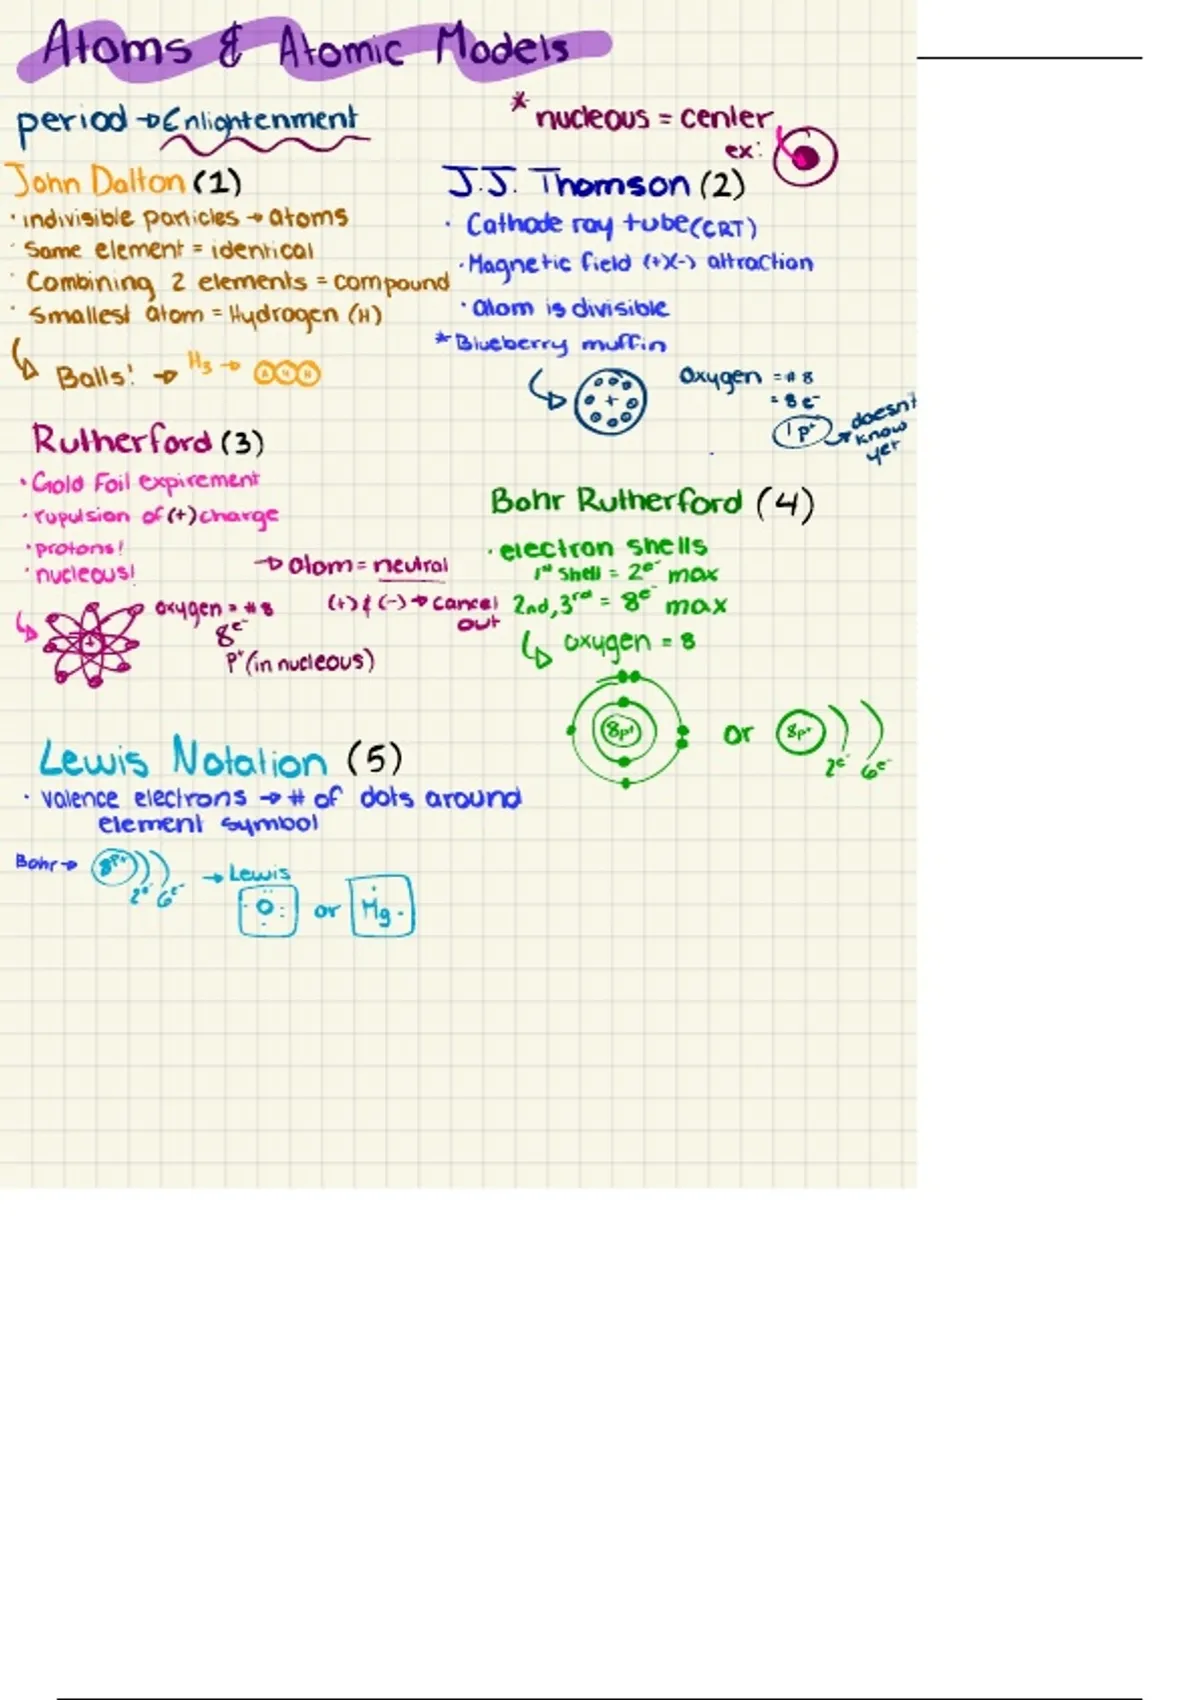 Atoms & Atomic Models
period → Enlightenment
* nucleous = center
ex:
John Dalton (1)
· indivisible particles → atoms
· Same element = identical
· Combining 2 elements = compound
· Smallest atom = Hydrogen (H)
Balls! → H3 →
H H
J.J. Thomson (2)
· Cathode ray tube (CRT)
· Magnetic field (+)(-) attraction
· atom is divisible
* Blueberry muffin
+
Oxygen = # 8
= 8 e-
1 p+
doesn't
know
yet
Rutherford (3)
· Gold Foil expirement
· rupulsion of (+) charge
· protons!
· nucleous!
→ atom = neutral
(+) & (-) → cancel
out
+
oxygen = # 8
8e-
p+ (in nucleous)
Bohr Rutherford (4)
· electron shells
1st shell = 2e- max
2nd, 3rd = 8e- max
oxygen = 8
8p+
or
8p+
2e- 6e-
Lewis Notation (5)
· valence electrons → # of dots around
element symbol
Bohr →
8p+
2e- 6e-
→ Lewis
O
or
Mg